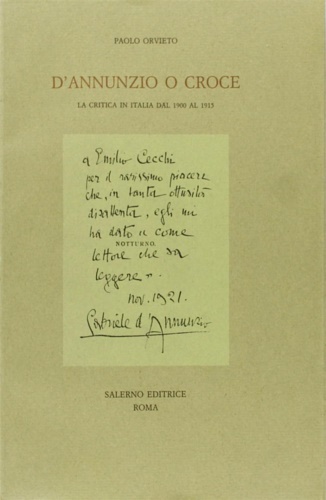 PAOLO ORVIETO
D'ANNUNZIO O CROCE
LA CRITICA IN ITALIA DAL 1900 AL 1915
a Emilio Cecchi
per il rarissimo piacere
che, in tanta ottusità
disattenta, egli mi
ha dato come
NOTTURNO.
lettore che sa
leggere.
nov. 1921.
Gabriele d'Annunzio
SALERNO EDITRICE
ROMA